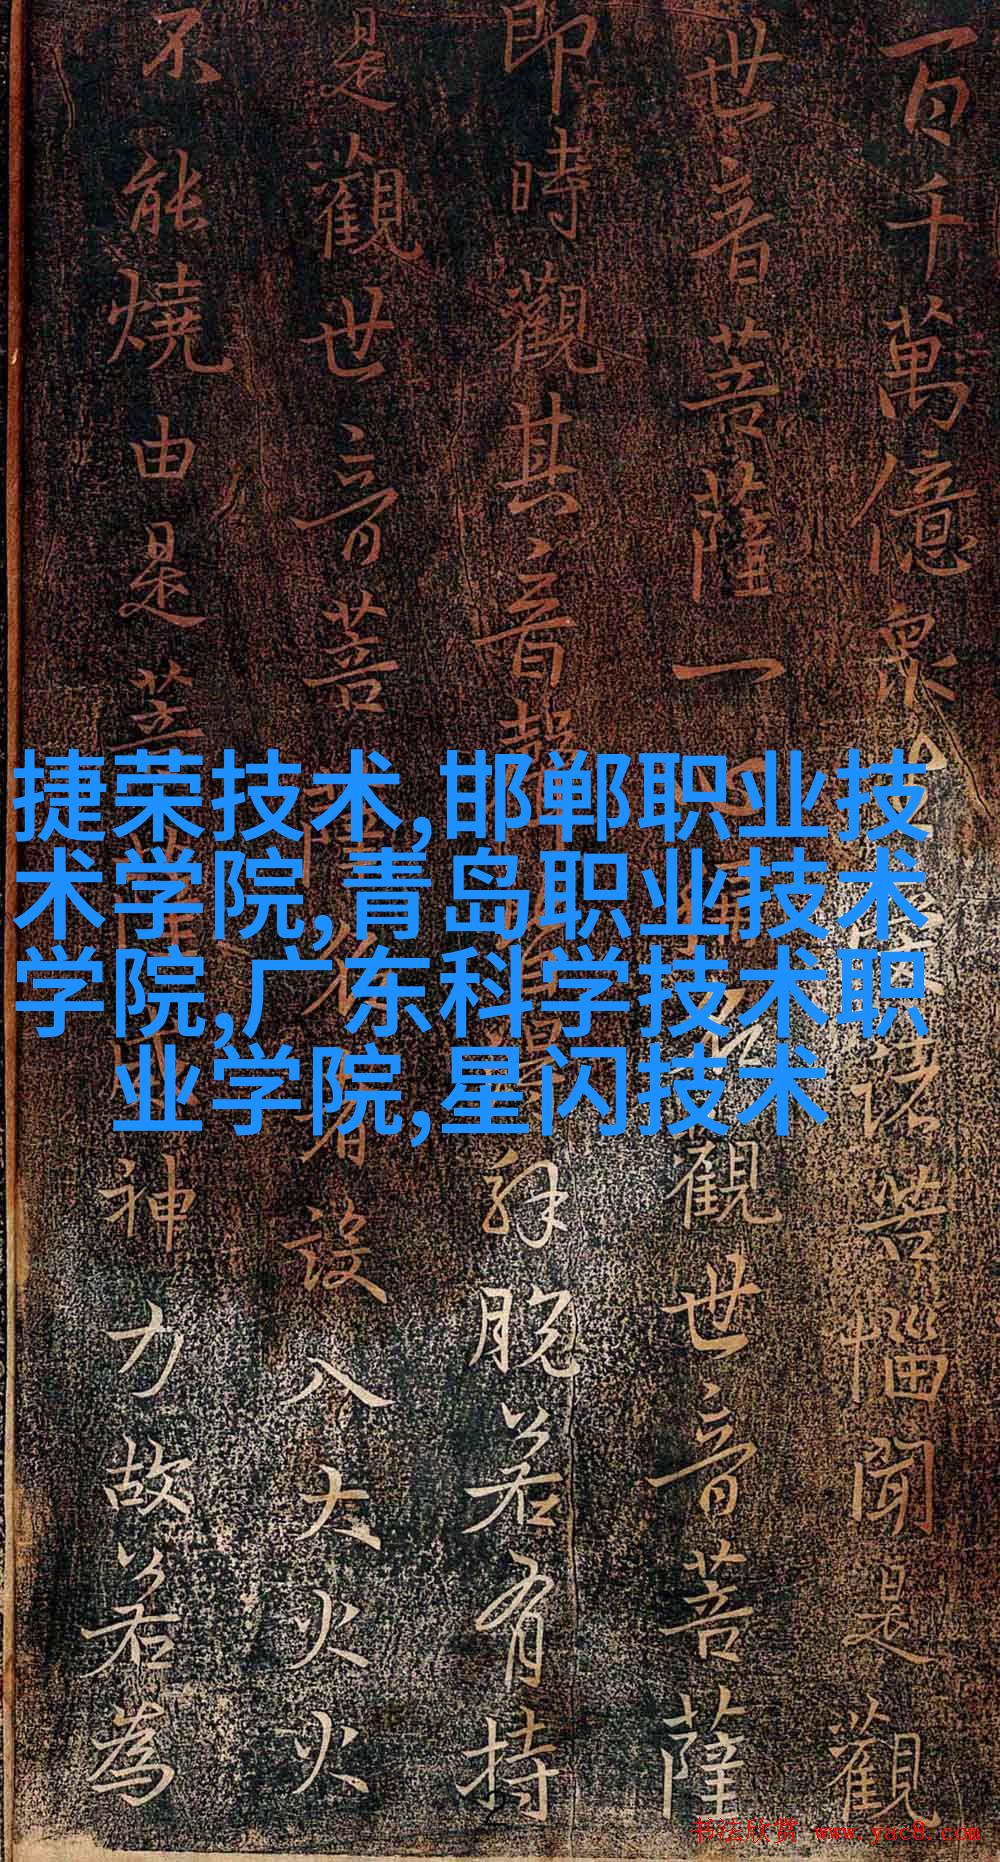 百千萬億眾生諸苦惱聞是觀
世音菩薩一心稱名觀世音菩薩
即時觀其音聲皆得解脫若有持
是觀世音菩薩名者設入大火火
不能燒由是菩薩威神力故若為
捷荣技术,邯郸职业技
术学院,青岛职业技术
学院,广东科学技术职
业学院,星闪技术
书法欣赏 www.yac8.com